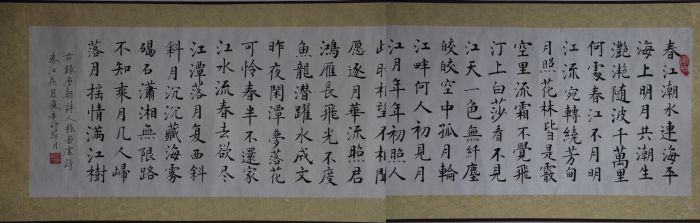 春江潮水連海平
海上明月共潮生
灩灩随波千萬里
何處春江不月明
江流宛轉繞芳甸
月照花林皆是霰
空里流霜不覺飛
汀上白莎看不見
江天一色無纤塵
皎皎空中孤月輪
江畔何人初見月
江月年年初照人
此時相望不相聞
愿逐月華流照君
鴻雁長飛光不度
魚龍潜躍水成文
昨夜閑潭夢落花
可怜春半不還家
江水流春去欲尽
江潭落月复西斜
斜月沉沉藏海霧
碣石瀟湘無限路
不知乘月几人歸
落月摇情滿江樹
古錄唐朝詩人張若虚詩
春江花月夜